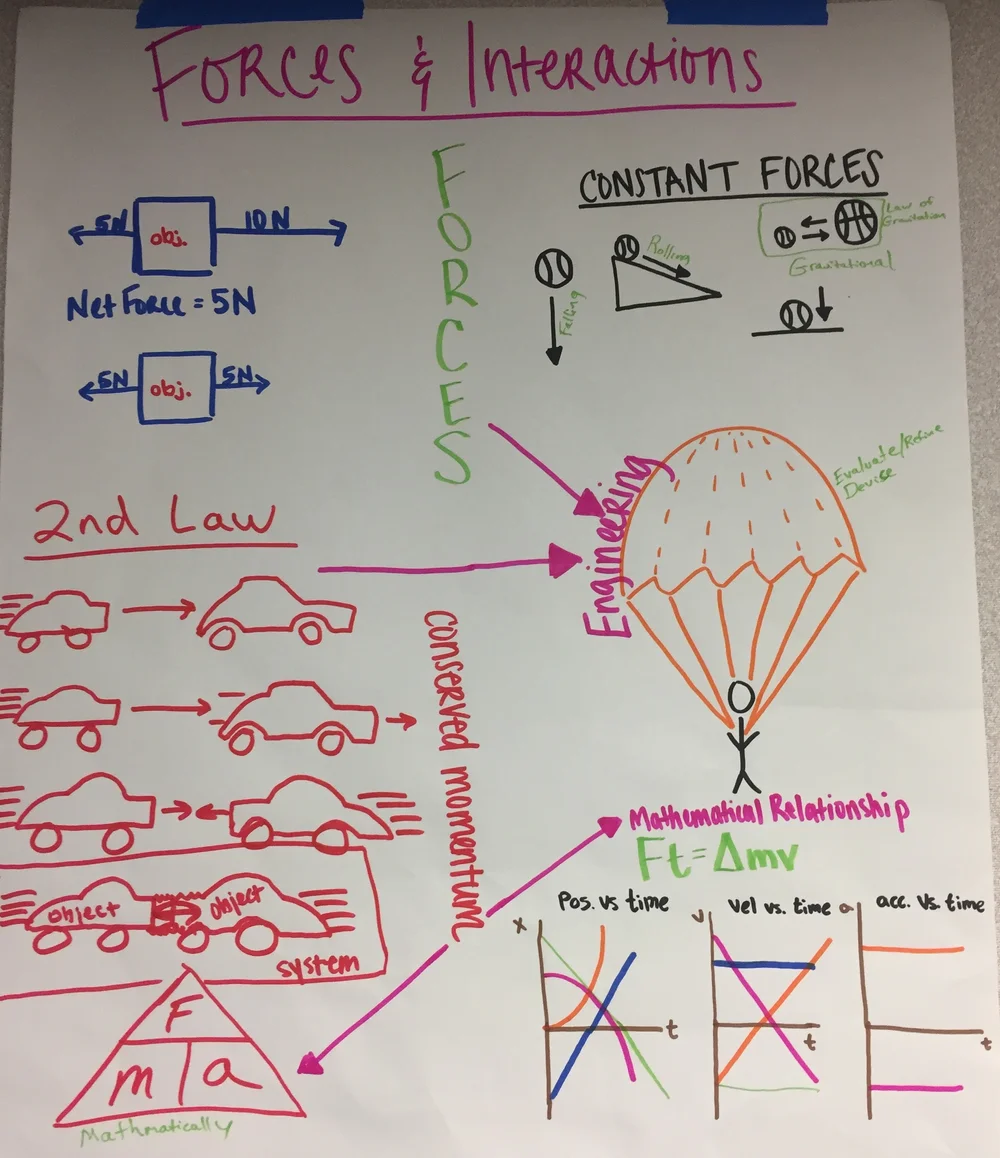 Forces & Interactions
FORCES
5N obj. 10N
Net Force = 5N
5N obj. 5N
CONSTANT FORCES
Falling
Rolling
Law of
Gravitation
Gravitational
2nd Law
conserved momentum
object object
system
F
m a
Mathmatically
Engineering
Evaluate/Refine
Devise
Mathematical Relationship
Ft=Δmv
Pos. vs time
x
t
vel vs. time
v
t
acc. vs. time
a
t